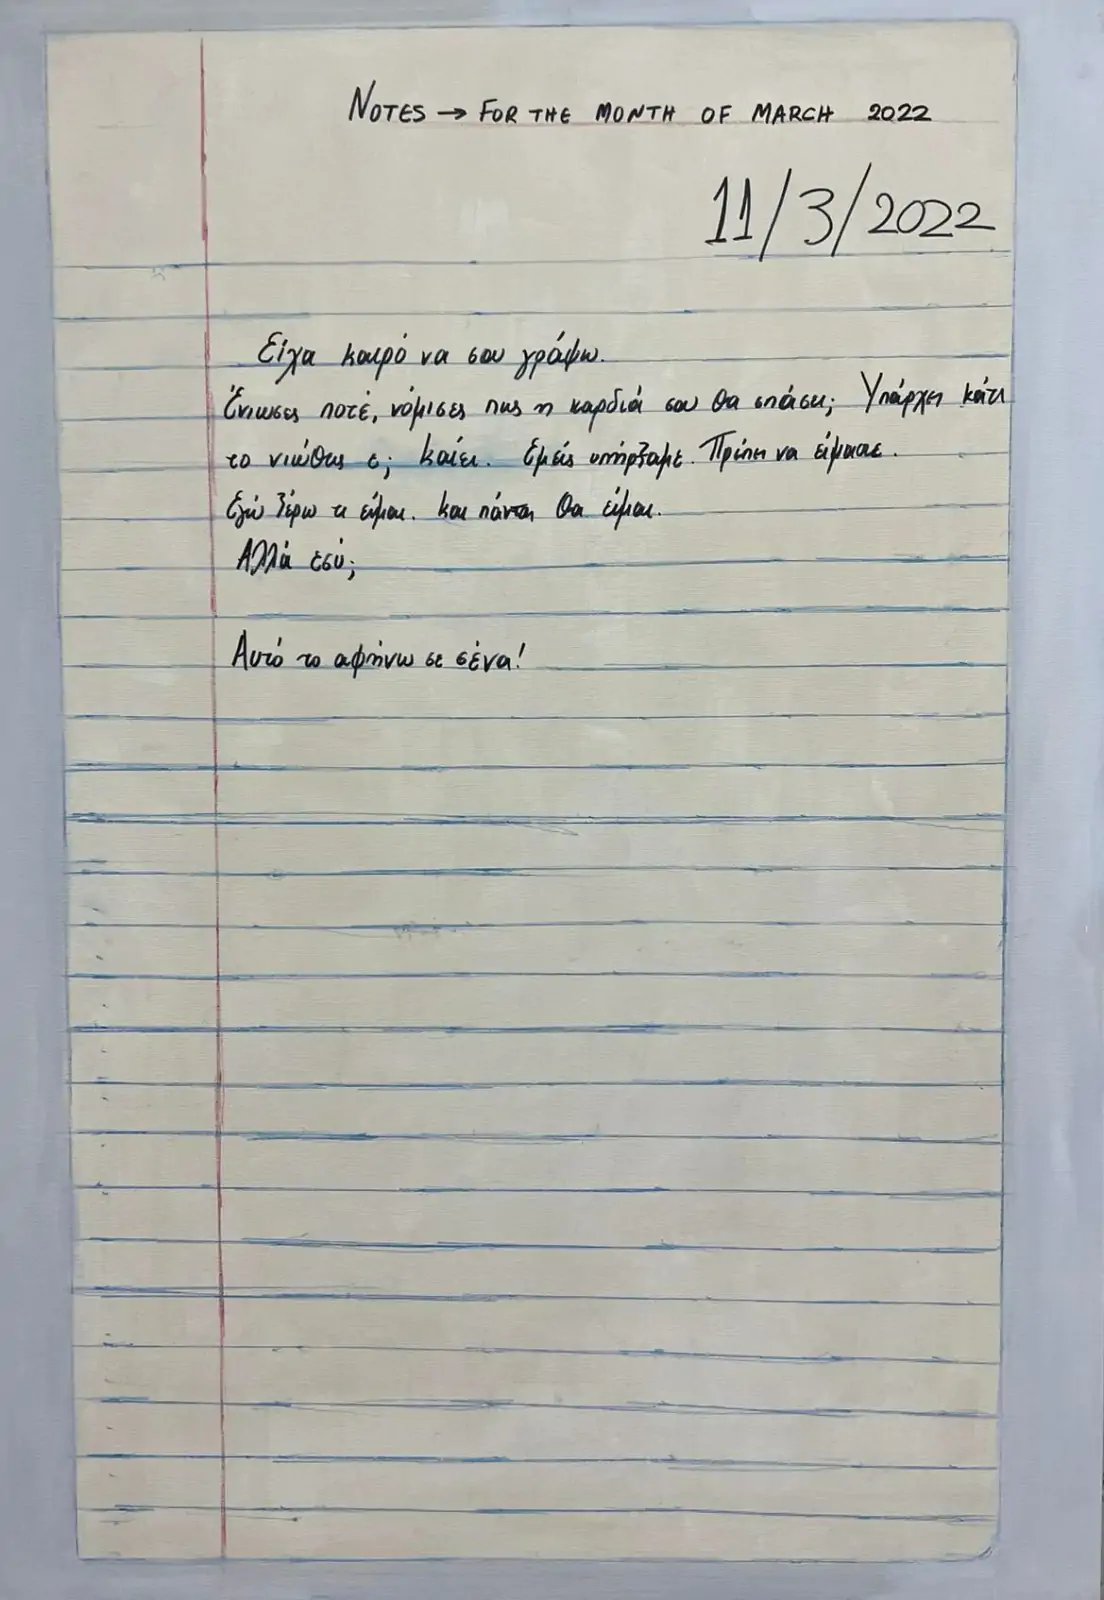 NOTES → FOR THE MONTH OF MARCH 2022
11/3/2022
Είχα καιρό να σου γράψω.
Ένιωσες ποτέ, νόμισες πως η καρδιά σου θα σπάσει; Υπάρχει κάτι
το νιώθεις ε; καίει. Εμείς υπήρξαμε. Πρέπει να είμαστε.
Εγώ ξέρω τι είμαι. και πάντα θα είμαι.
Αλλά εσύ;
Αυτό το αφήνω σε σένα!